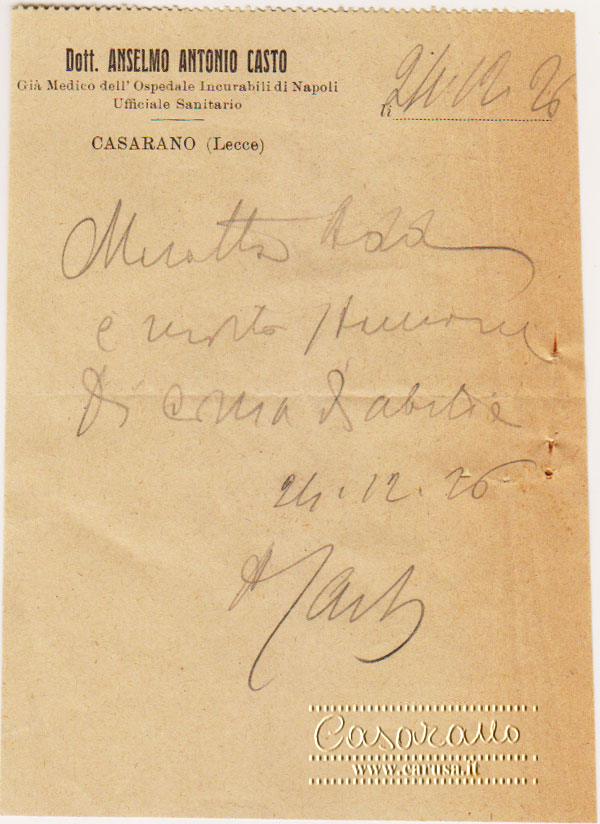 Dott. ANSELMO ANTONIO CASTO
Già Medico dell' Ospedale Incurabili di Napoli
Ufficiale Sanitario
CASARANO (Lecce)
li 24. 12. 26
è morto
Di coma
24. 12. 26
A Casto
Casarano
www.carusa.it